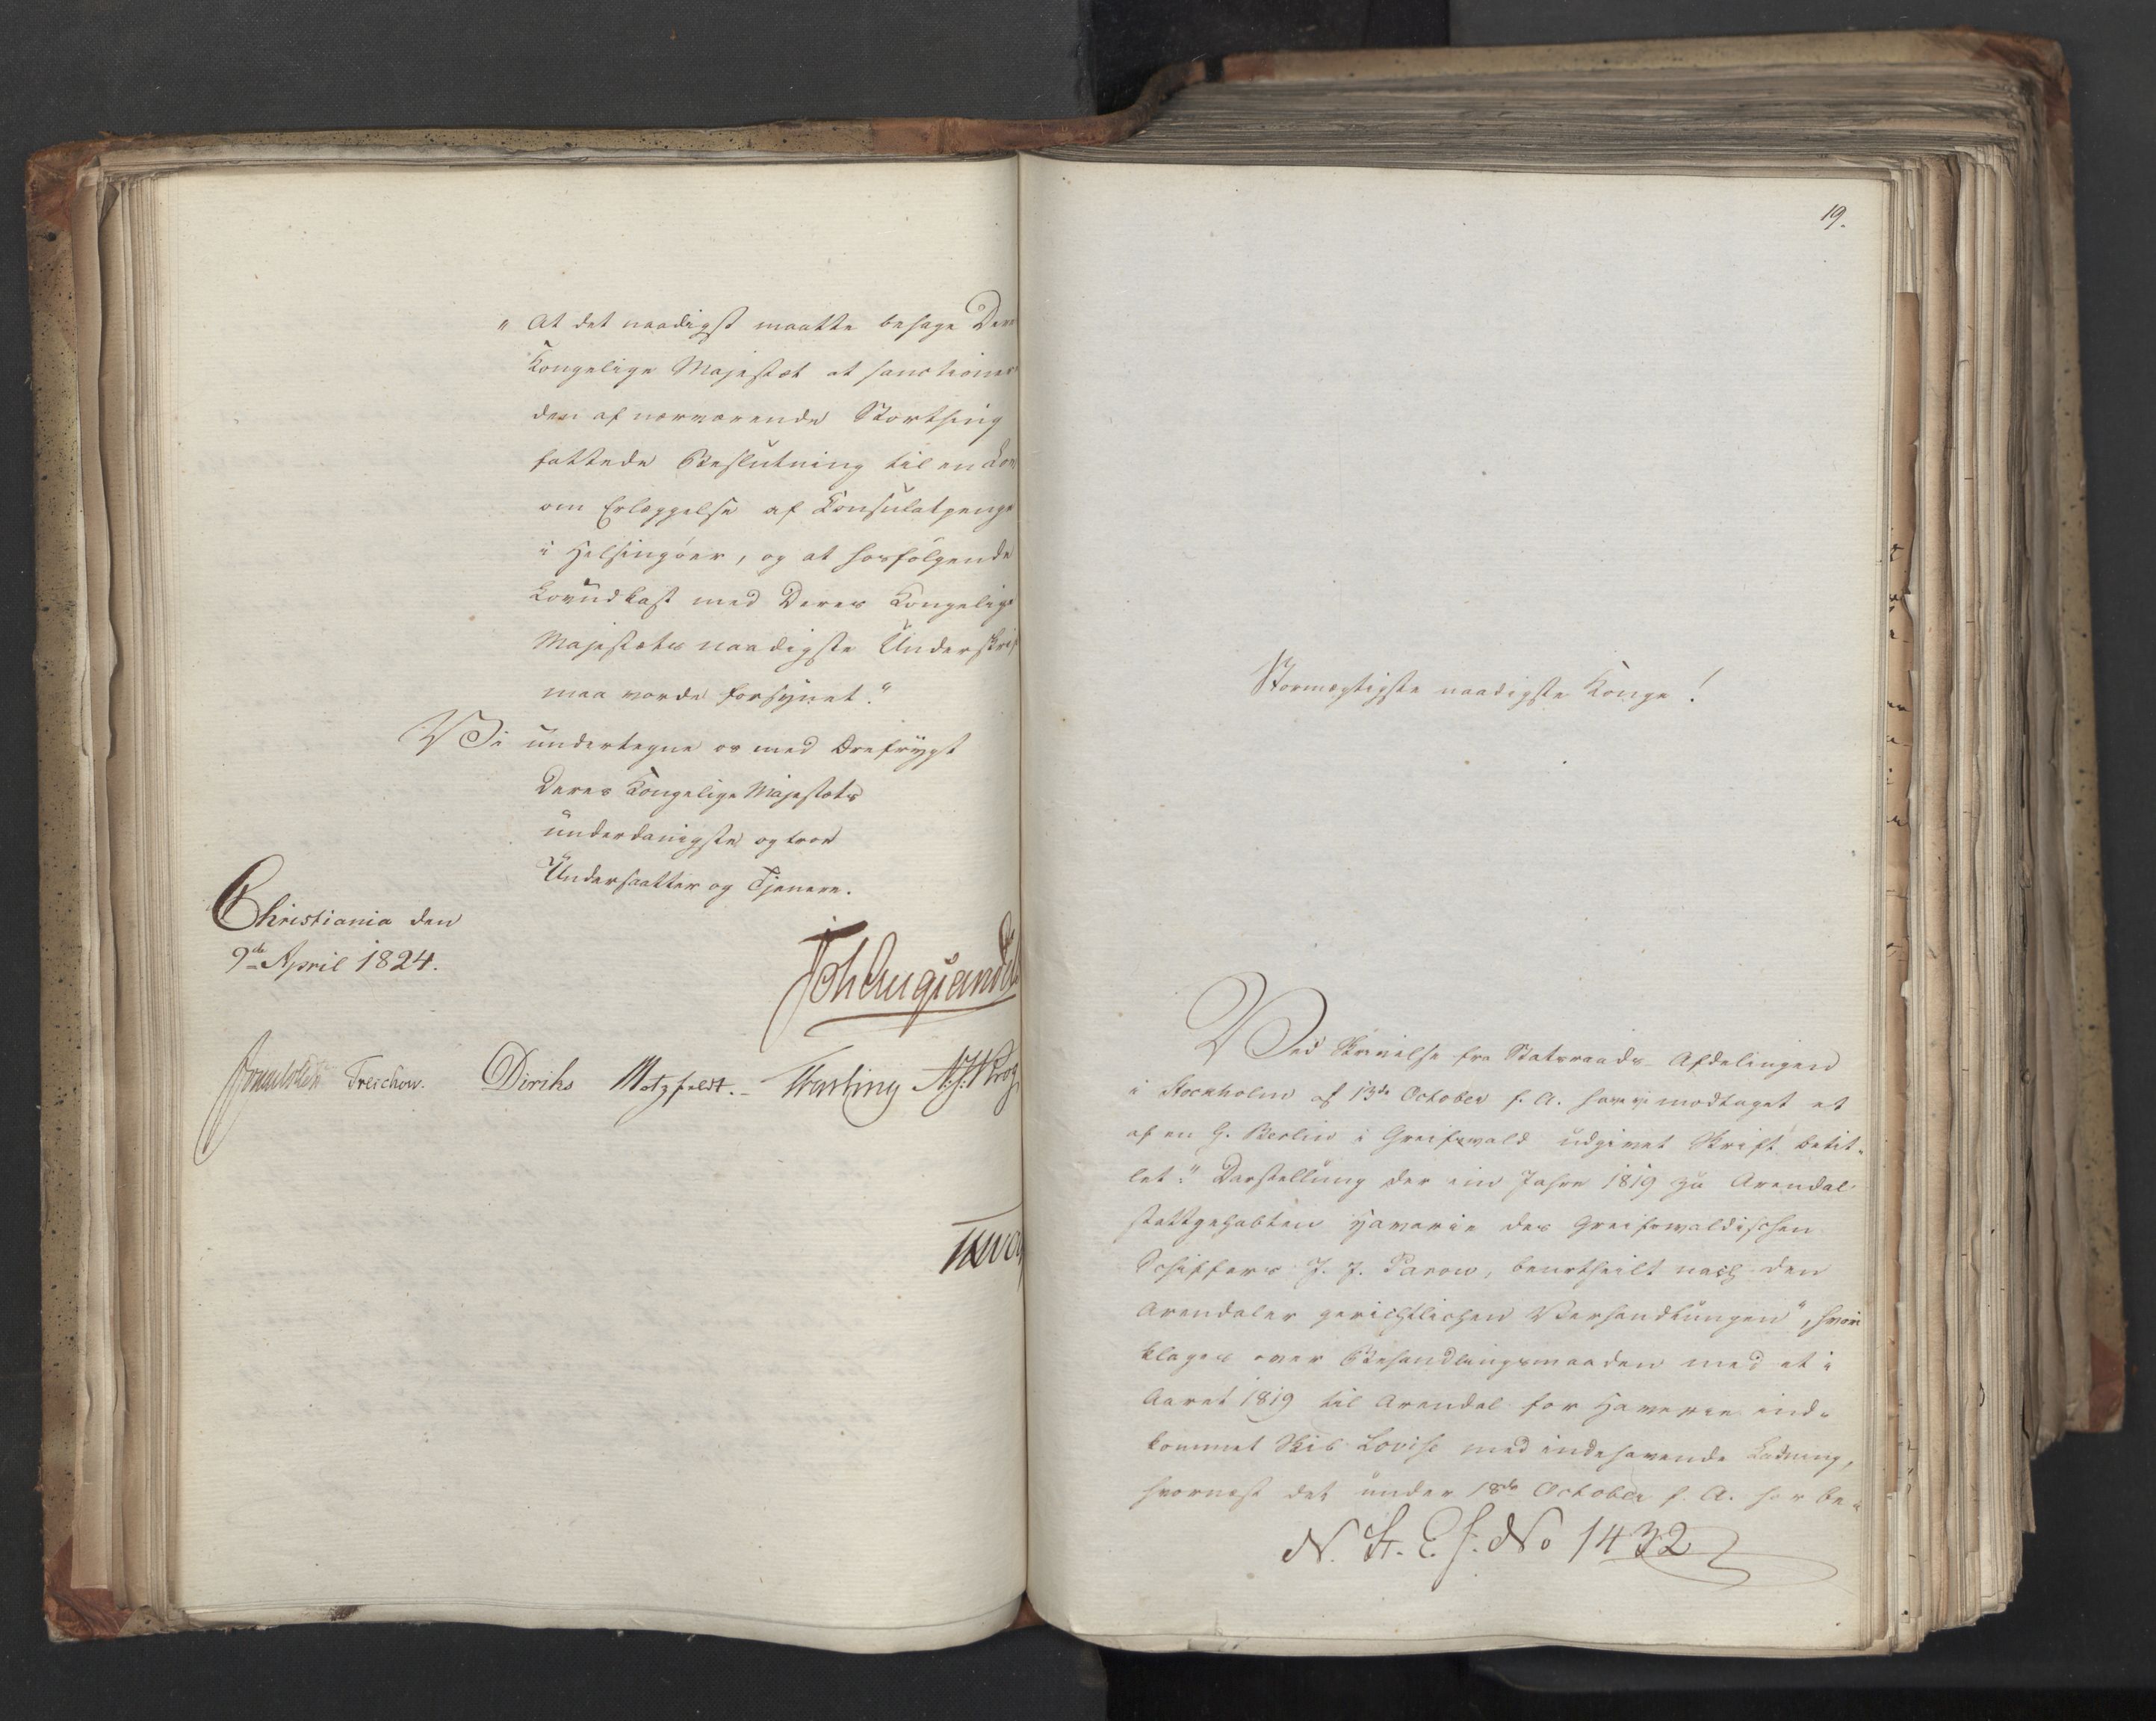 „ At det naadigst maatte behage Deres
Kongelige Majestæt at sanctionere
den af nærværende Storthing
fattede Beslutning til en Lov
om Erlæggelse af Consulatpenge
i Helsingøer, og at hosfølgende
Lovudkast med Deres Kongelige
Majestæts naadigste Underskrift
maa vorde forsynet.“
Vi undertegne os med Ærefrygt
Deres Kongelige Majestæts
underdanigste og troe
Undersaatter og Tjenere.
Christiania den
9de April 1824.
Joh Aug Sandels
Sommerhielm Treschow. Diriks Motzfeldt. Fasting N. J. Krog
19.
Stormægtigste naadigste Konge!
Ved Skrivelse fra Statsraads Afdelingen
i Stockholm af 13de October f. A. have vi modtaget et
af en G. Berlin i Greifswald udgivet Skrift betit-
let: „Darstellung der im Jahre 1819 zu Arendal
stattgehabten Havarie des Greifswaldischen
Schiffers J. J. Parow, beurtheilt nach den
Arendaler gerichtlichen Verhandlungen“, hvori
klages over Behandlingsmaaden med et i
Aaret 1819 til Arendal for Haverie ind-
kommet Skib Lovise med indehavende Ladning,
hvornæst det under 18de October f. A. har be-
N. St. E. f. No 1432